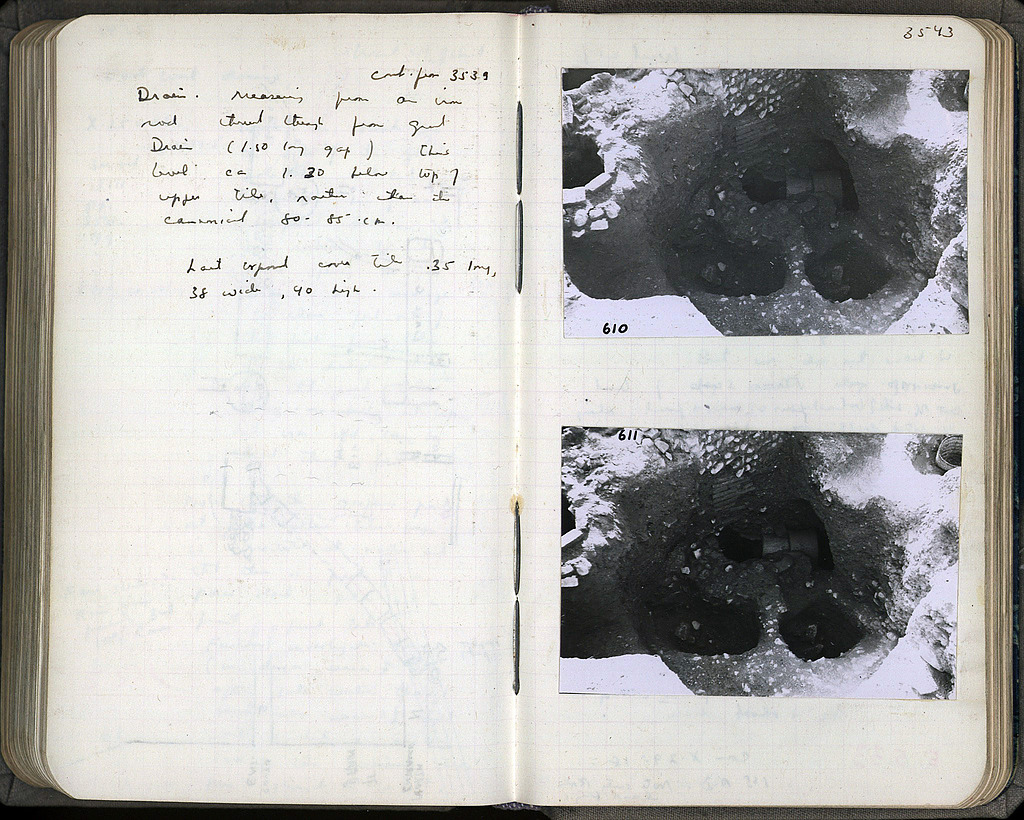 cont. from 3539
Drain. Measuring from an iron
rod thrust through from great
Drain (1.50 long gap) this
level ca 1.30 below top of
upper tile, rather than the
canonical 80-85 cm.
Last exposed cover tile .35 long,
38 wide, 40 high.
3543
610
611